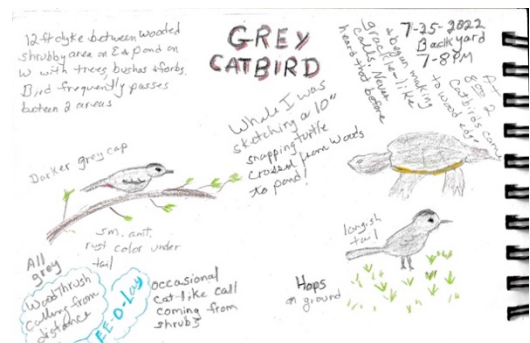 12-ft dyke between wooded
shrubby area on E & pond on
W with trees, bushes & forbs.
Bird frequently passes
between 2 areas
GREY
CATBIRD
7-25-2022
Backyard
7-8PM
At
8:50 2
Catbirds came
to wood edge
& began making
grackle-like
calls. Never
heard that before
While I was
sketching a 10"
snapping turtle
crossed from woods
to pond!
Darker grey cap
sm. amt.
rust color under
tail
All
grey
longish
tail
Wood Thrush
calling from
distance
EE-O-Lay
occasional
cat-like call
coming from
shrubs
Hops
on ground